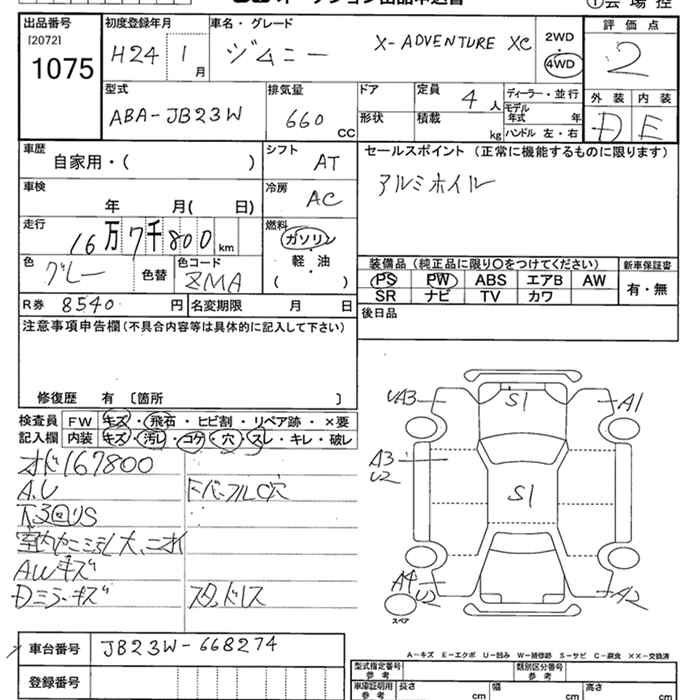 オークション出品申込書
①会場控
出品番号
[2072]
1075
初度登録年月
H24 1月
車名・グレード
ジムニー X-ADVENTURE XC
2WD
4WD
評価点
2
型式
ABA-JB23W
排気量
660 CC
ドア
形状
定員 4人
積載 kg
ディーラー・並行
モデル年式 年
ハンドル 左・右
外装 内装
D E
車歴
自家用・( )
シフト
AT
セールスポイント (正常に機能するものに限ります)
アルミホイル
車検
年 月( 日)
冷房
AC
走行
16万7千800km
燃料
ガソリン
軽・油
( )
色
グレー
色替
色コード
ZMA
装備品 (純正品に限り○をつけてください)
PS PW ABS エアB AW
SR ナビ TV カワ
新車保証書
有・無
R券 8540円
名変期限 月 日
後日品
注意事項申告欄(不具合内容等は具体的に記入して下さい)
修復歴 有 〔箇所 〕
検査員記入欄
FW キズ・飛石・ヒビ割・リペア跡・×要
内装 キズ・汚レ・コゲ・穴・スレ・キレ・破レ
オド167800
A.U
Fバンパー穴
下3回りS
AWキズ
Dミラーキズ
スタッドレス
UA3
S1
A1
A3
U2
S1
A4
U2
A2
スペア
A-キズ E-エクボ U-凹み W-補修跡 S-サビ C-腐食 XX-交換済
車台番号
JB23W-668274
登録番号
型式指定番号 参考
類別区分番号 参考
車庫証明用 参考
長さ cm
幅 cm
高さ cm